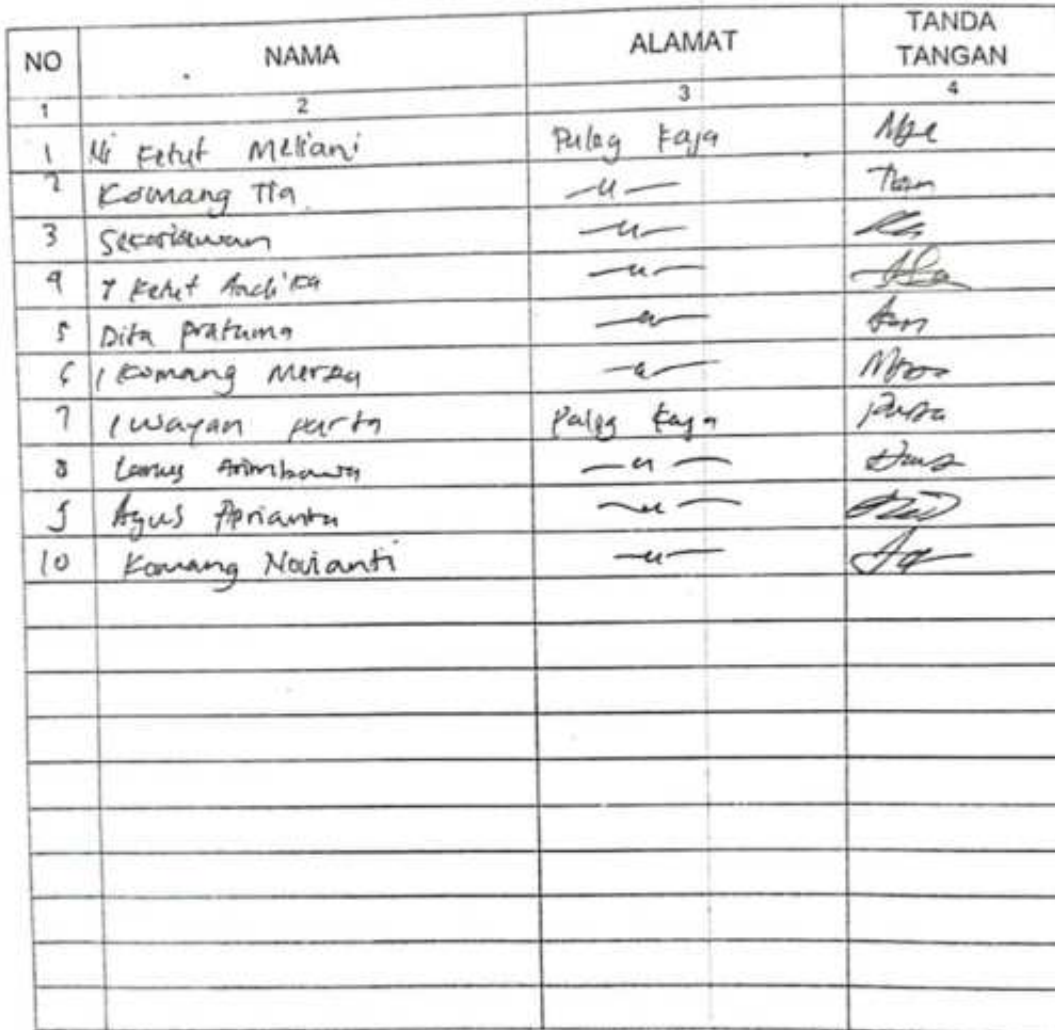 NO NAMA ALAMAT TANDA TANGAN
1 2 3 4
1 Ni Ketut Meliani Puleg Kaja
2 Komang Tia —u—
3 —u—
4 I Ketut Andika —u—
5 Dita Pratama —u—
6 I Komang Mersa —u—
7 I Wayan Parta Paleg Kaja
8 Arimbawa —u—
9 Agus Aprianta —u—
10 Komang Novianti —u—